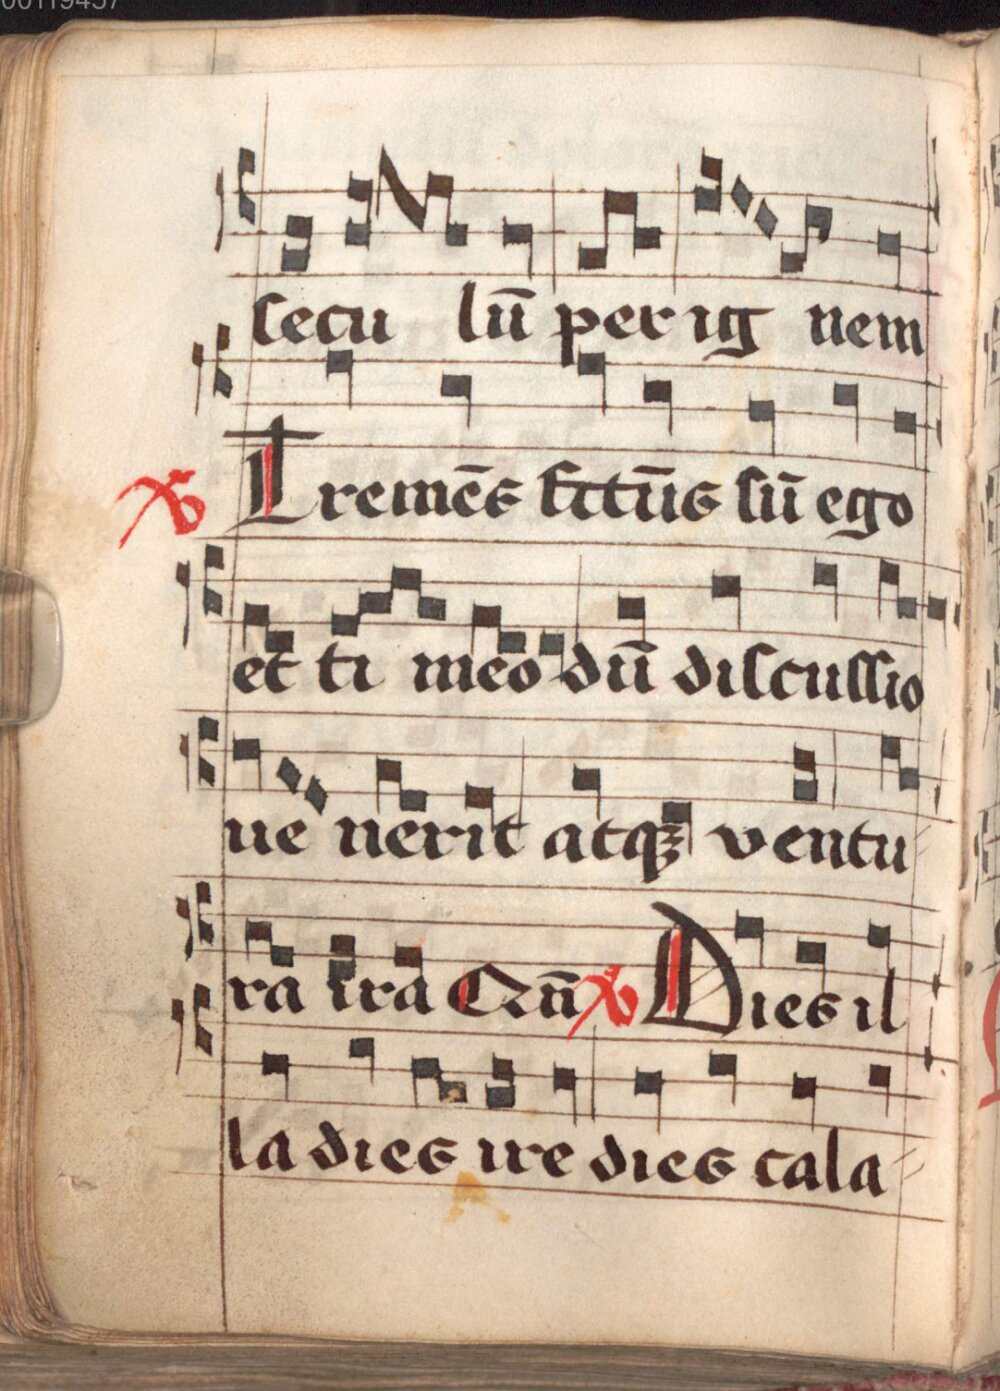 00119457
secu lū per ig nem
℣ Tremēs fctūs sū ego
et ti meo dū discussio
ue nerit atqꝫ ventu
ra ira Qn̄ ℣ Dies il
la dies ire dies cala